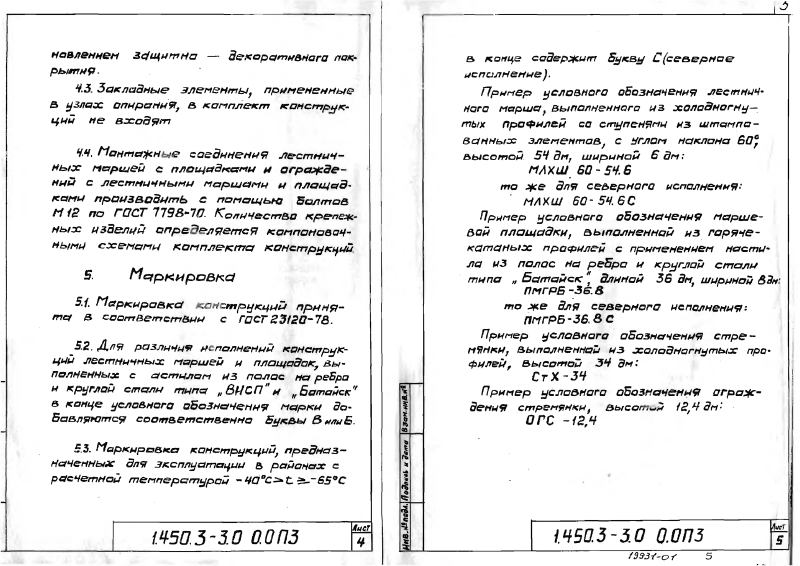 новлением защитна — декоративного пок-
рытия.
4.3. Закладные элементы, примененные
в узлах опирания, в комплект конструк-
ций не входят
4.4. Монтажные соединения лестнич-
ных маршей с площадками и огражде-
ний с лестничными маршами и площад-
ками производить с помощью болтов
М12 по ГОСТ 7798-70. Количество крепеж-
ных изделий определяется компоновоч-
ными схемами комплекта конструкций.
5. Маркировка
5.1. Маркировка конструкций приня-
та в соответствии с ГОСТ 23120-78.
5.2. Для различия исполнений конструк-
ций лестничных маршей и площадок, вы-
полненных с астилом из полос на ребро
и круглой стали типа „ВНСП" и „Батайск"
в конце условного обозначения марки до-
бавляются соответственно буквы В или Б.
5.3. Маркировка конструкций, предназ-
наченных для эксплуатации в районах с
расчетной температурой -40°С>t≥-65°С
1.450.3-3.0 0.0ПЗ
Лист
4
3
в конце содержит букву С (северное
исполнение).
Пример условного обозначения лестнич-
ного марша, выполненного из холодногну-
тых профилей со ступенями из штампо-
ванных элементов, с углом наклона 60°,
высотой 54 дм, шириной 6 дм:
МЛХШ 60-54.6
то же для северного исполнения:
МЛХШ 60-54.6С
Пример условного обозначения марше-
вой площадки, выполненной из горяче-
катаных профилей с применением насти-
ла из полос на ребро и круглой стали
типа „Батайск", длиной 36 дм, шириной 8 дм:
ПМГРБ-36.8
то же для северного исполнения:
ПМГРБ-36.8С
Пример условного обозначения стре-
мянки, выполненной из холодногнутых про-
филей, высотой 34 дм:
СтХ-34
Пример условного обозначения ограж-
дения стремянки, высотой 12,4 дм:
ОГС -12,4
Инв. № подл. Подпись и дата Взам. инв. №
1.450.3-3.0 0.0ПЗ
Лист
5
19931-01 5